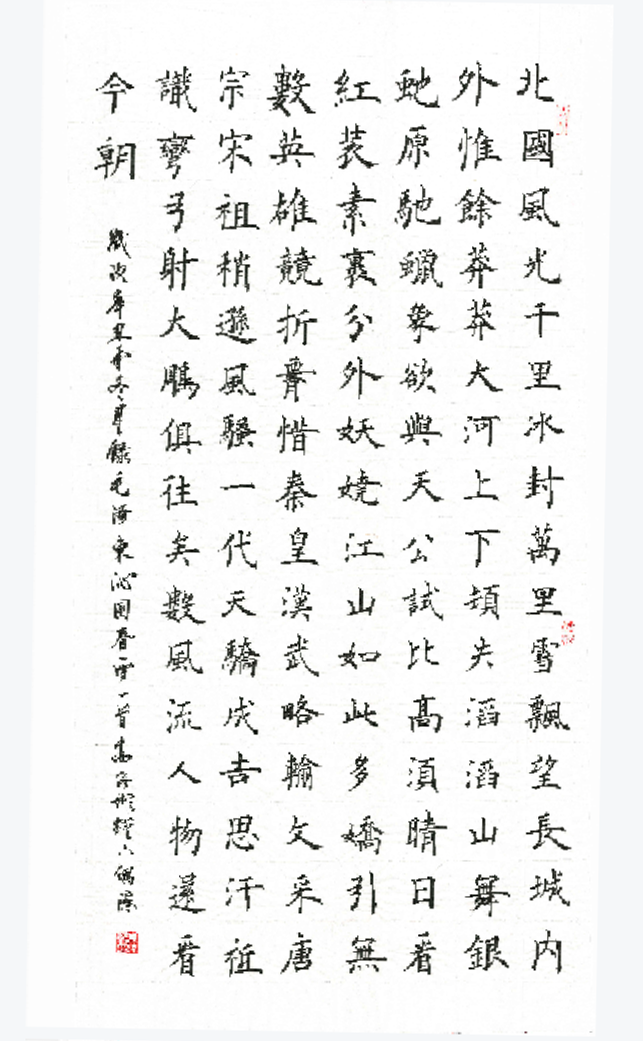 北國風光千里冰封萬里雪飄望長城内
外惟餘莽莽大河上下頓失滔滔山舞銀
虵原馳蠟象欲與天公試比高須晴日看
紅裝素裹分外妖嬈江山如此多嬌引無
數英雄競折惜秦皇漢武略輸文采唐
宗宋祖稍遜風騷一代天驕成吉思汗祗
識彎弓射大鵰俱往矣數風流人物還看
今朝
歲次辛丑冬錄毛澤東沁園春雪一首